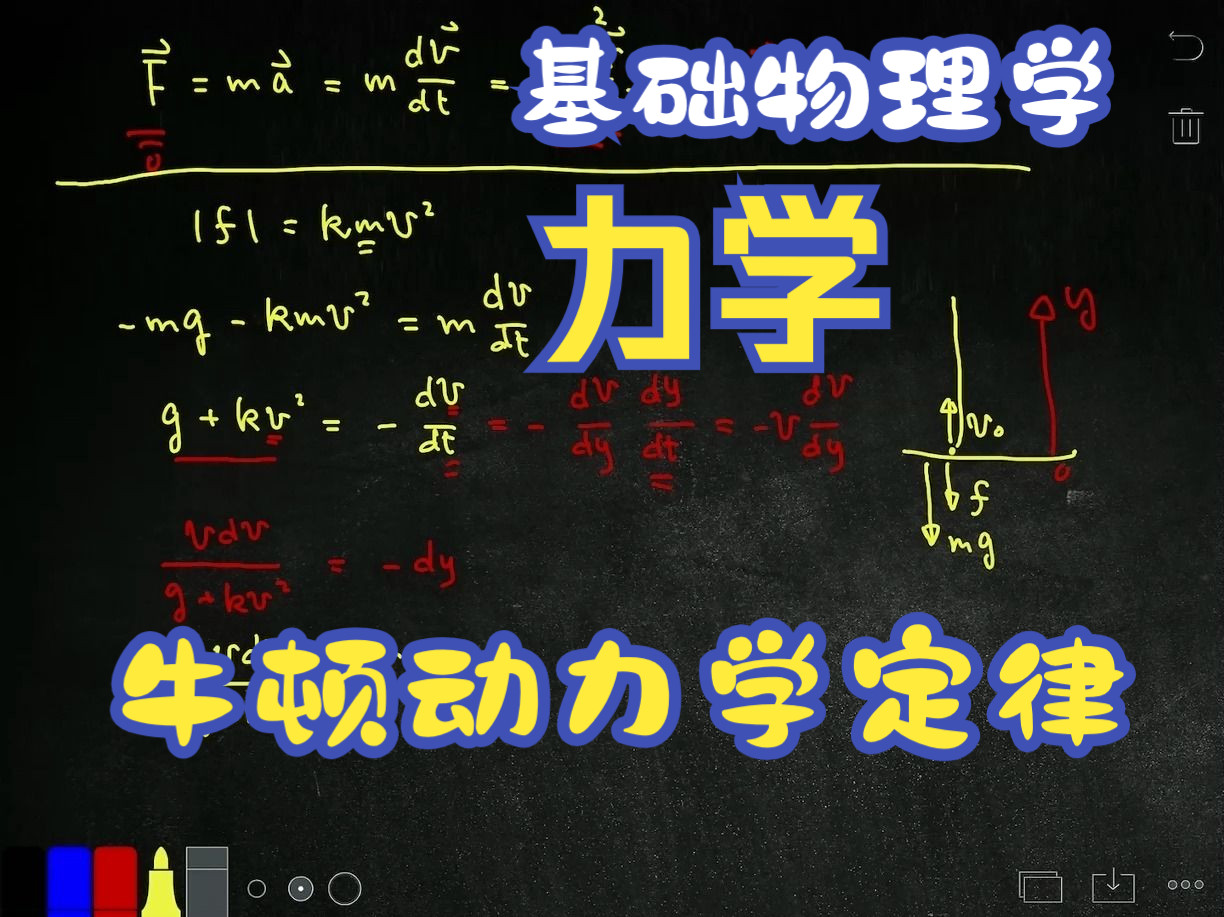 F⃗ = m a⃗ = m dv⃗/dt =
基础物理学
力学
|f| = kmv²
-mg - kmv² = m dv/dt
g + kv² = - dv/dt = - dv/dy dy/dt = -v dv/dy
y
v₀
o
f
mg
vdv/g + kv² = - dy
牛顿动力学定律